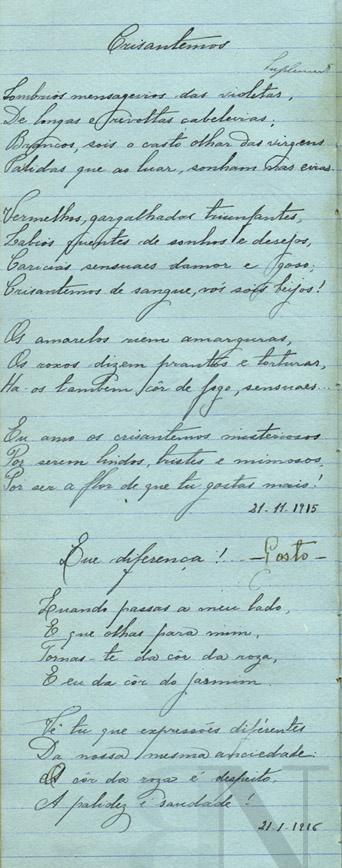 Crisantemos
Suplemento
Sombrios mensageiros das violetas,
De longas e revoltas cabeleiras;
Brancos, sois o casto olhar das virgens
Palidas que ao luar, sonham nas eiras.
Vermelhos, gargalhadas triunfantes,
Labios quentes de sonhos e desejos,
Caricias sensuaes d'amor e goso;
Crisantemos de sangue, vós sois beijos!
Os amarelos riem amarguras,
Os roxos dizem prantos e torturas,
Ha-os tambem côr de fogo, sensuaes...
Eu amo os crisantemos misteriosos
Por serem lindos, tristes e mimosos,
Por ser a flor de que tu gostas mais!
21-11-1915
Que diferença! -Posto-
Quando passas a meu lado,
E que olhas para mim,
Tornas-te da côr da roza,
E eu da côr do jasmim.
Vê tu que expressões diferentes
Da nossa mesma anciedade:
A côr da roza é despeito
A palidez é saudade!
21-1-1916
N